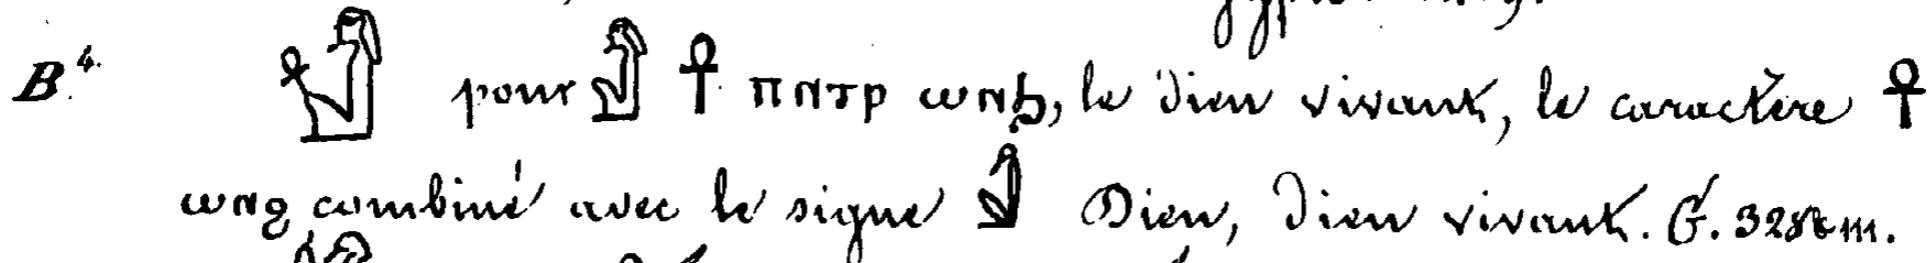 B⁴. 𓁐 pour 𓀭 𓋹 ⲡⲛⲧⲣ ⲱⲛϧ, le Dieu vivant, le caractère 𓋹
ⲱⲛϩ combiné avec le signe 𓀭 Dieu, Dieu vivant. G.